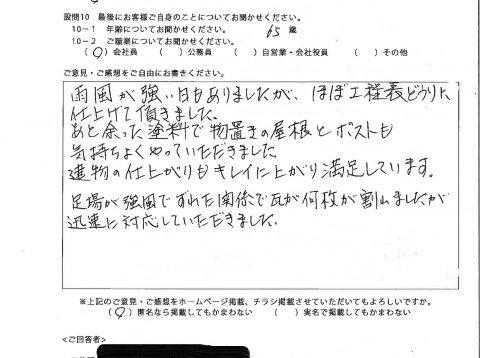 設問10 最後にお客様ご自身のことについてお聞かせください。
10-1 年齢についてお聞かせください。 65 歳
10-2 ご職業についてお聞かせください。
(○)会社員 ( )公務員 ( )自営業・会社役員 ( )その他
ご意見・ご感想をご自由にお書きください。
雨風が強い日もありましたが、ほぼ工程表どうりに
仕上げて頂きました。
あと余った塗料で物置きの屋根とポストも
気持ちよくやっていただきました。
建物の仕上がりもキレイに上がり満足しています。
足場が強風でずれた関係で瓦が何枚が割れましたが
迅速に対応していただきました。
※上記のご意見・ご感想をホームページ掲載、チラシ掲載させていただいてもよろしいですか。
(○)匿名なら掲載してもかまわない ( )実名で掲載してもかまわない
<ご回答者>